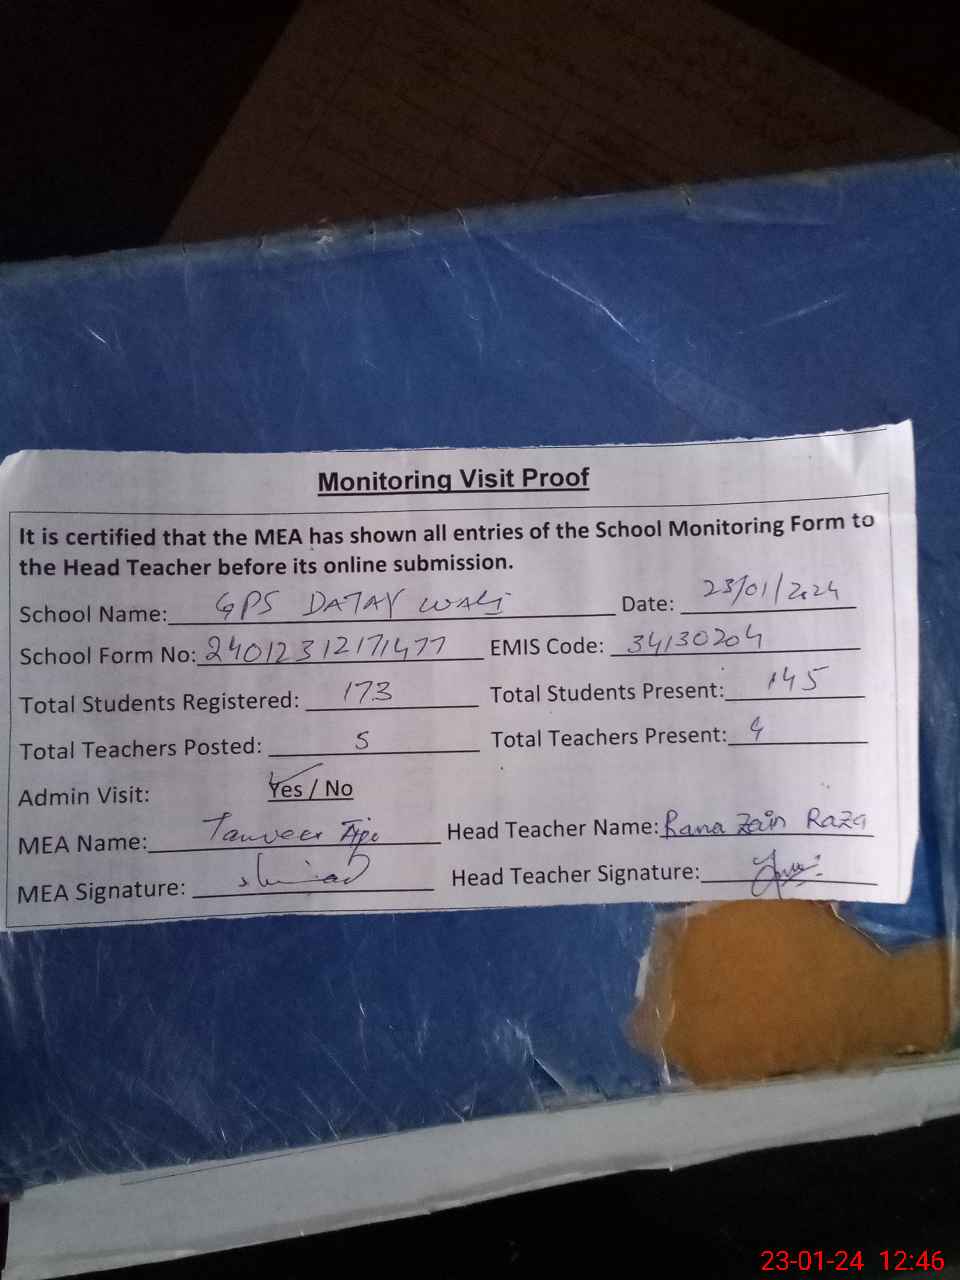 Monitoring Visit Proof
It is certified that the MEA has shown all entries of the School Monitoring Form to
the Head Teacher before its online submission.
School Name: GPS DATAY WALI Date: 23/01/2024
School Form No: 24012312171477 EMIS Code: 34130204
Total Students Registered: 173 Total Students Present: 145
Total Teachers Posted: 5 Total Teachers Present: 4
Admin Visit: Yes / No
MEA Name: Tanveer Head Teacher Name: Rana Zain Raza
MEA Signature: Head Teacher Signature:
23-01-24 12:46